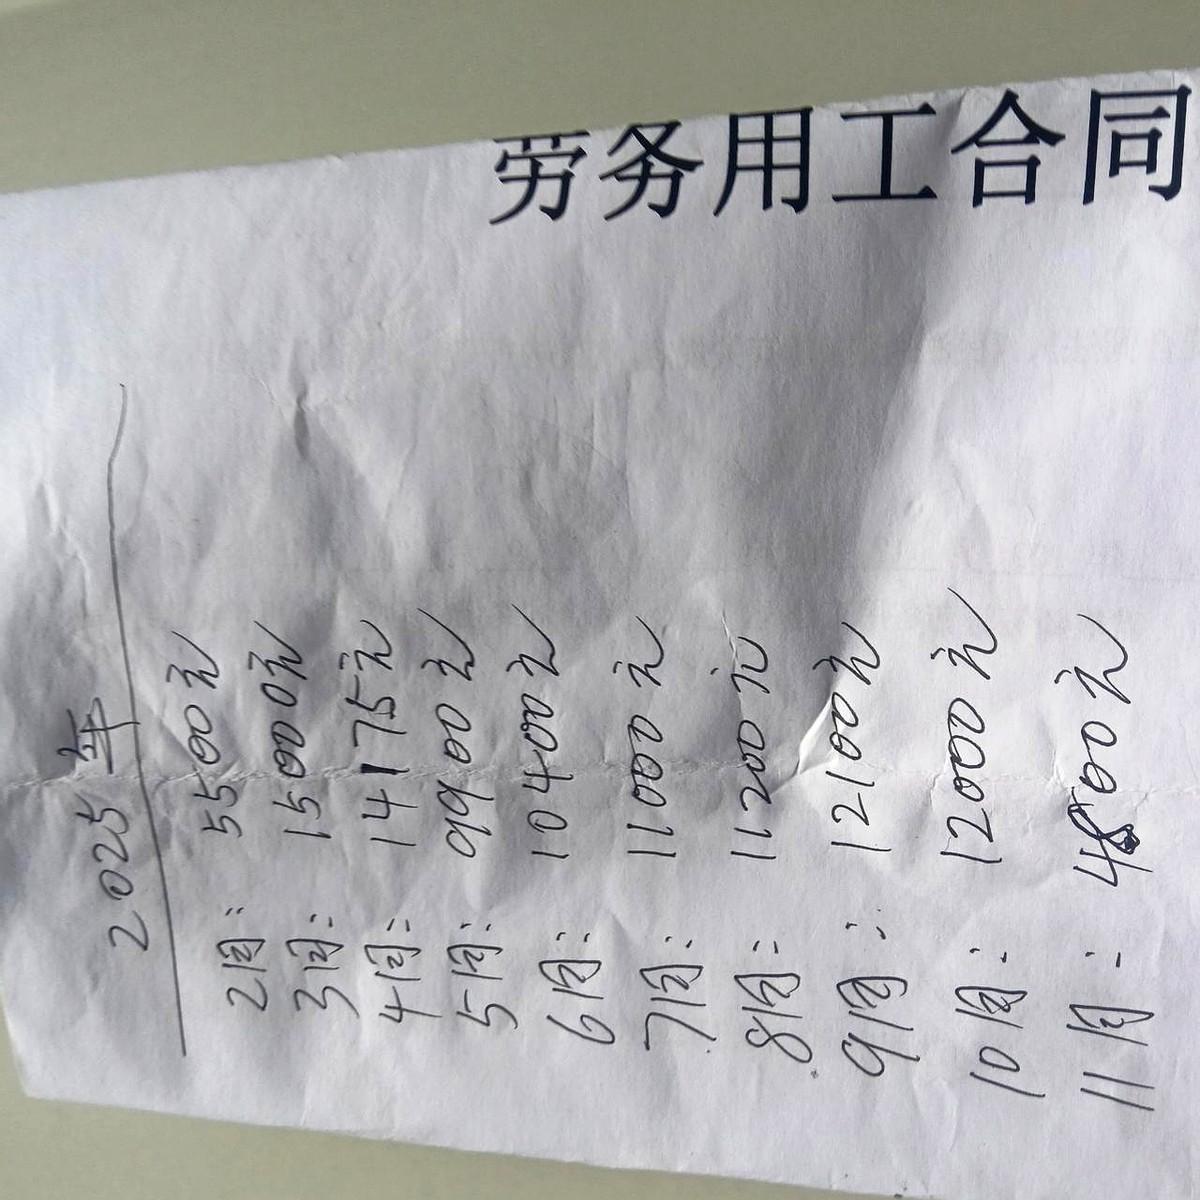 劳务用工合同
2025年
2月: 5500元
3月: 15000元
4月: 14175元
5月: 9900元
6月: 10400元
7月: 11000元
8月: 11200元
9月: 12100元
10月: 12000元
11月: 4800元